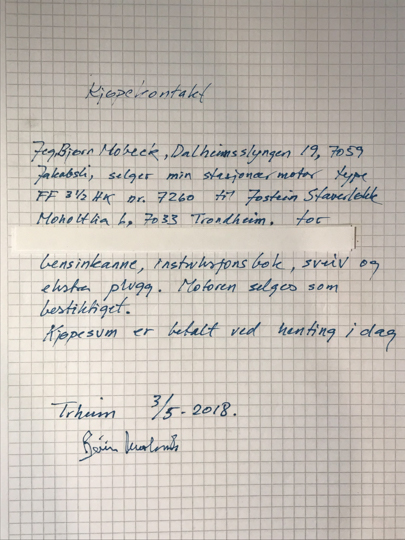 Kjøpekontakt
Jeg, Bjørn Mobeck, Dalheimsslyngen 19, 7059
Jakobsli, selger min stasjonærmotor type
FF 3½ HK nr. 7260 til Jostein Staverløkk
7033 Trondheim. for
bensinkanne, instruksjonsbok, sveiv og
ekstra plugg. Motoren selges som
besiktiget.
Kjøpesum er betalt ved henting i dag
Trheim 3/5-2018.